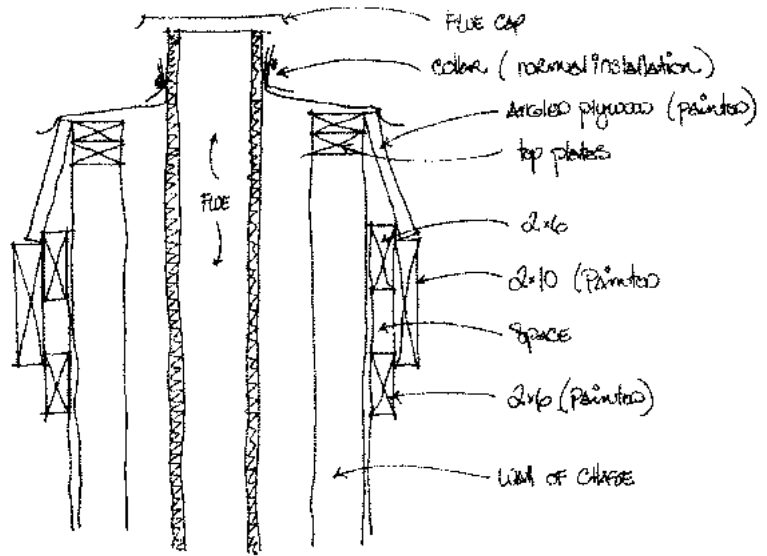 FLUE CAP
collar (normal installation)
Angled plywood (painted)
top plates
FLUE
2x6
2x10 (Painted
SPACE
2x6 (Painted)
WALL OF CHASE